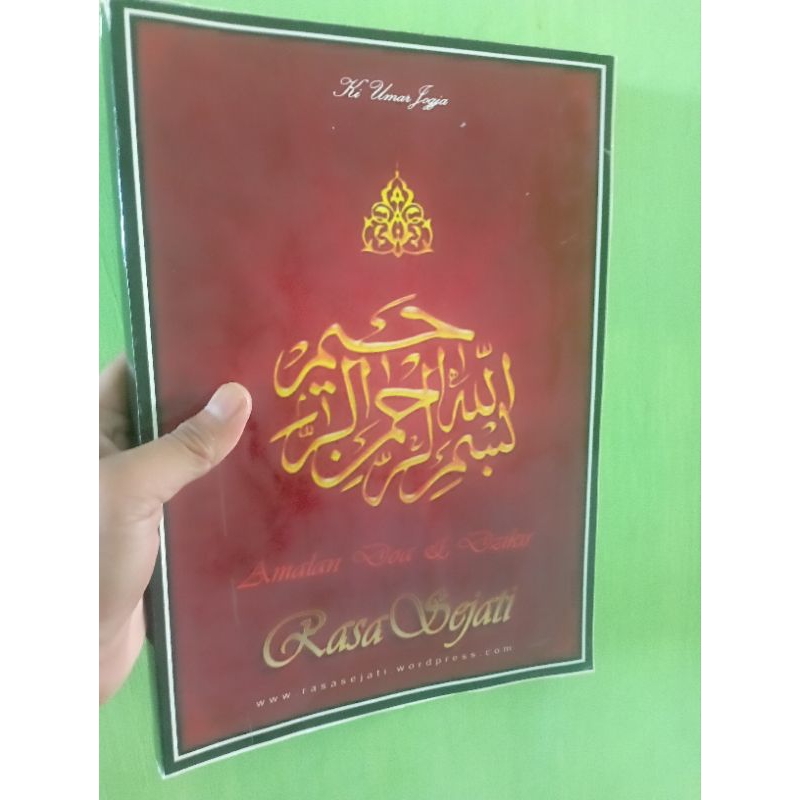 Ki Umar Jogja
بسم الله الرحمن الرحيم
Amalan Doa & Dzikir
Rasa Sejati
www.rasasejati.wordpress.com